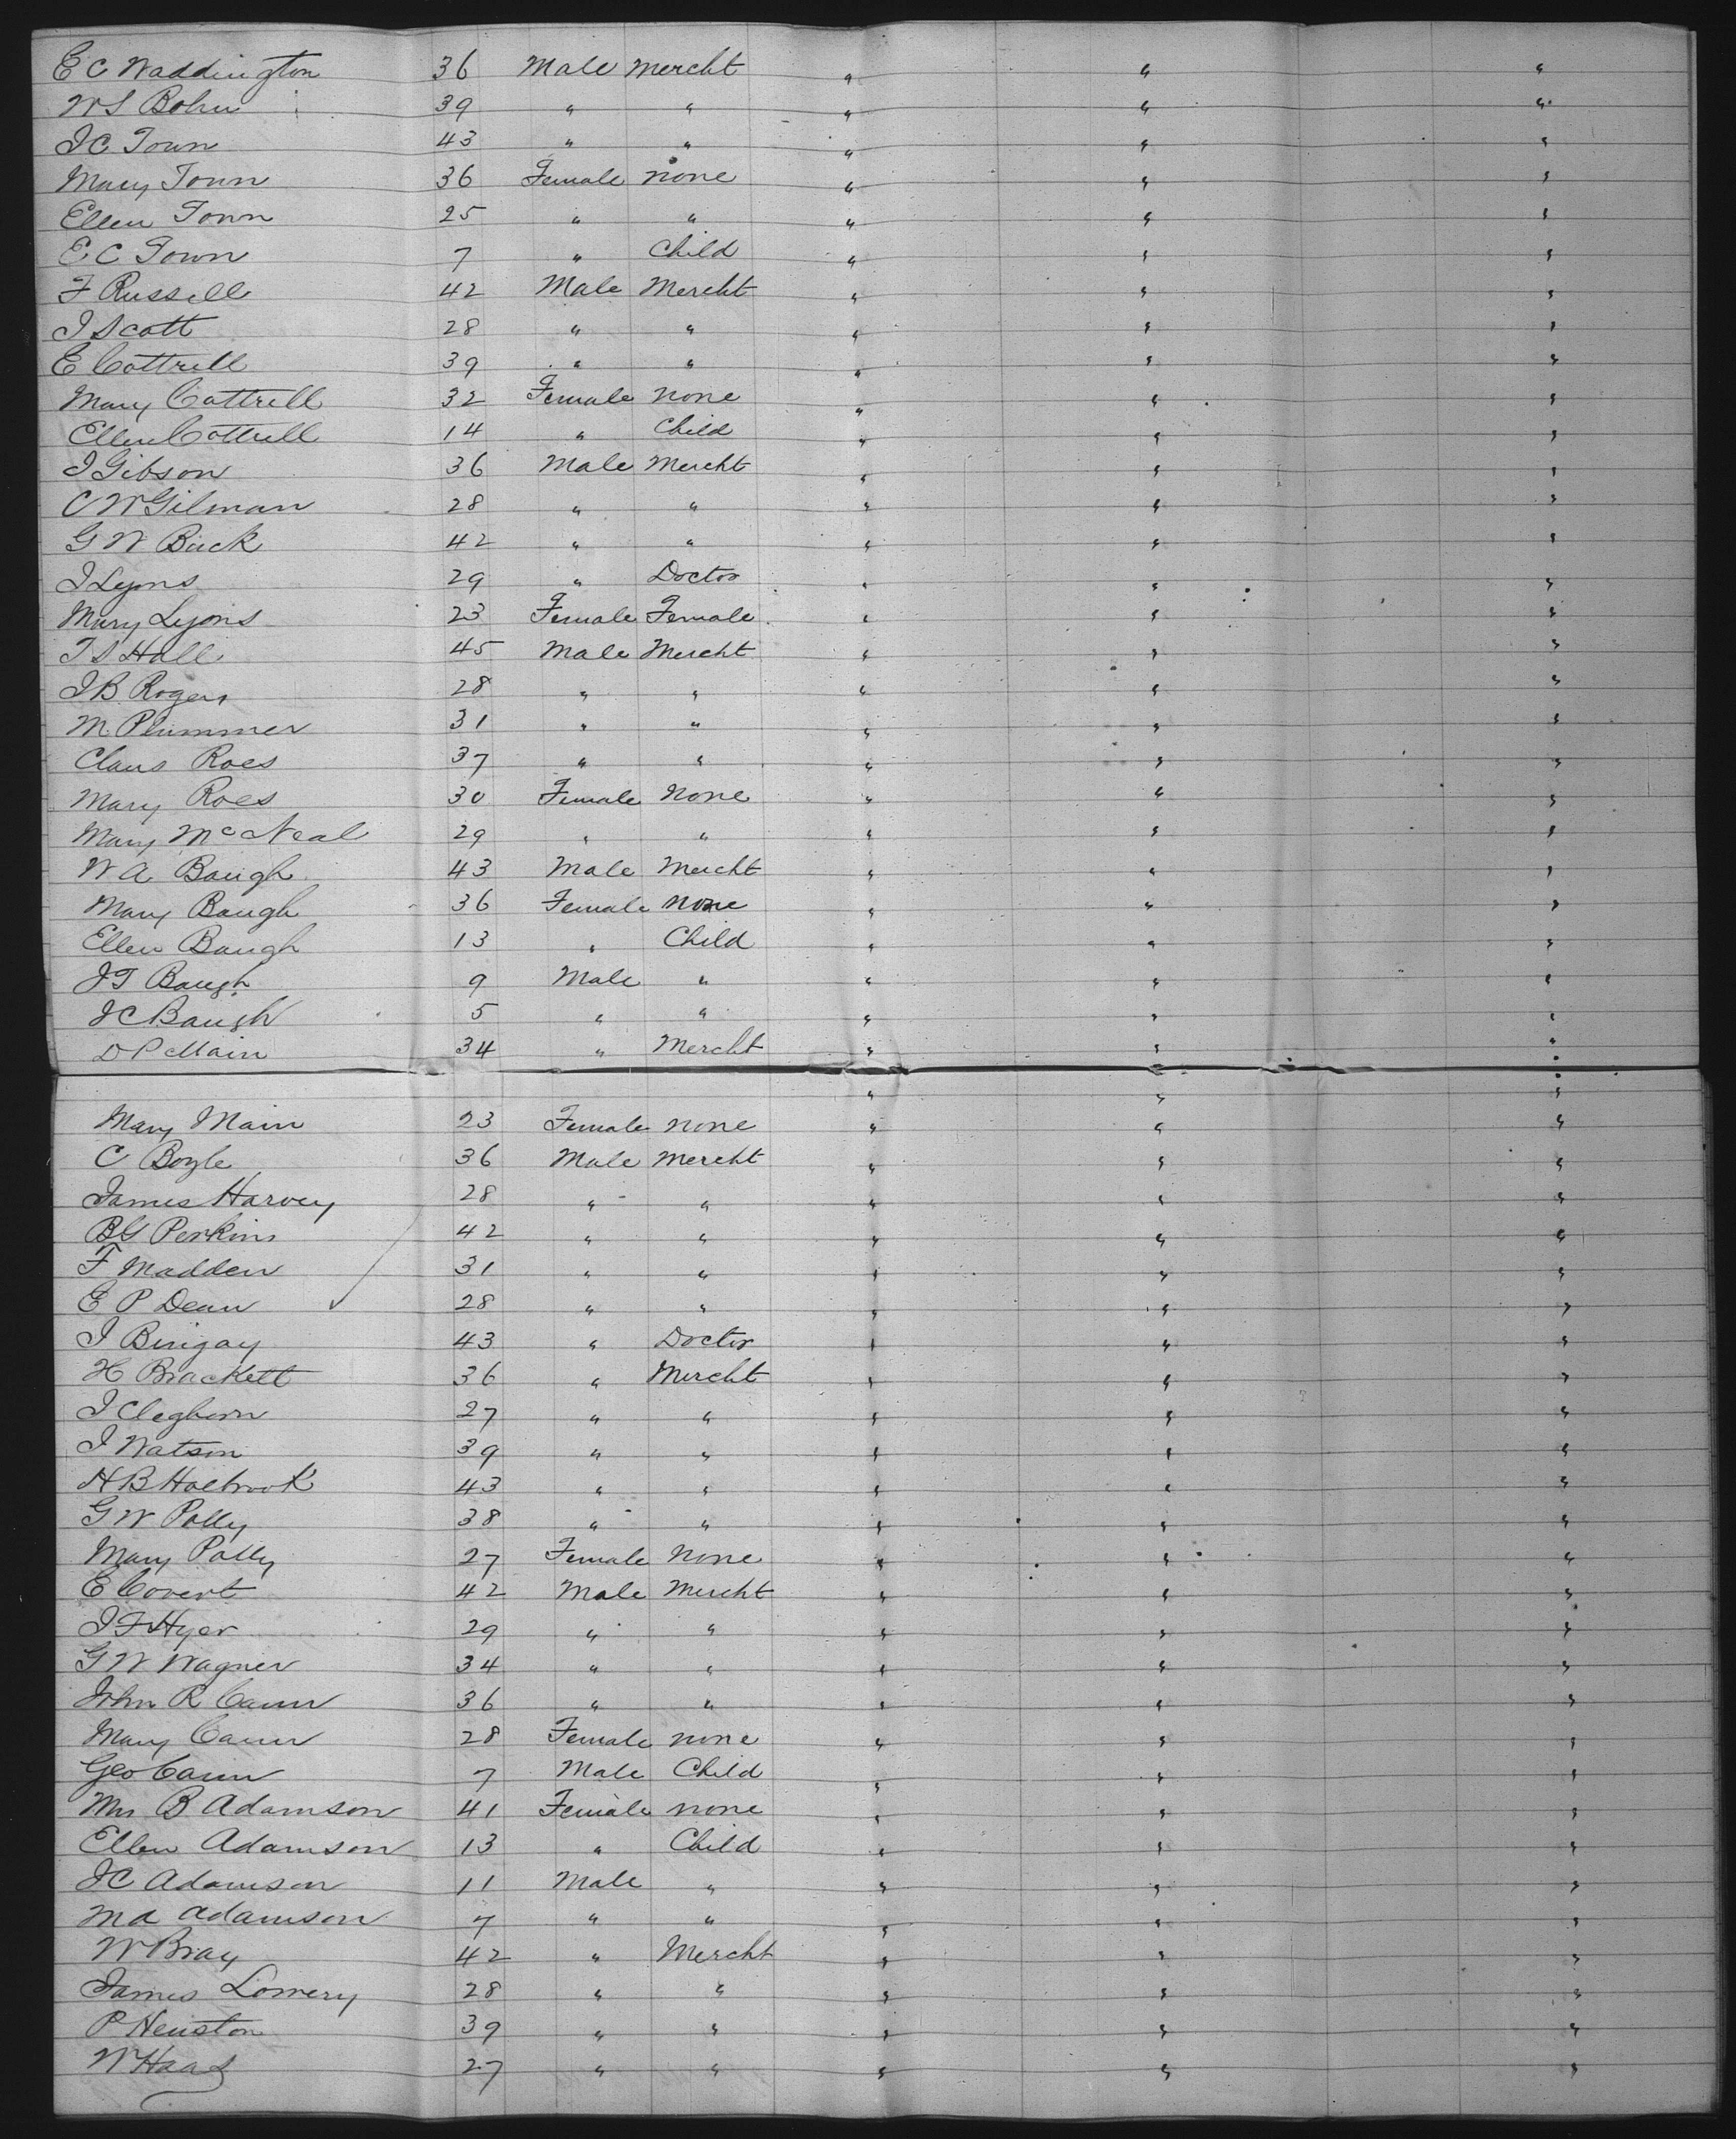 E C Waddington 36 Male Mercht " " "
W S Bohn 39 " " " " "
J C Town 43 " " " " "
Mary Town 36 Female none " " "
Ellen Town 25 " " " " "
E C Town 7 " Child " " "
F Russell 42 Male Mercht " " "
J Scott 28 " " " " "
E Cottrell 39 " " " " "
Mary Cottrell 32 Female none " " "
Ellen Cottrell 14 " Child " " "
J Gibson 36 Male Mercht " " "
C W Gilman 28 " " " " "
G W Buck 42 " " " " "
J Lyons 29 " Doctor " " "
Mary Lyons 23 Female Female " " "
T S Hall 45 Male Mercht " " "
J B Rogers 28 " " " " "
M Plummer 31 " " " " "
Claus Roes 37 " " " " "
Mary Roes 30 Female None " " "
Mary McNeal 29 " " " " "
W A Baugh 43 Male Mercht " " "
Mary Baugh 36 Female None " " "
Ellen Baugh 13 " Child " " "
J T Baugh 9 Male " " " "
J C Baugh 5 " " " " "
D P Main 34 " Mercht " " "
" " "
Mary Main 23 Female none " " "
C Boyle 36 Male Mercht " " "
James Harvey 28 " " " " "
B G Perkins 42 " " " " "
F Madden 31 " " " " "
E P Dean 28 " " " " "
J 43 " Doctor " " "
H Brackett 36 " Mercht " " "
J Cleghorn 27 " " " " "
J Watson 39 " " " " "
H B Holbrook 43 " " " " "
G W Polly 38 " " " " "
Mary Polly 27 Female None " " "
E Covert 42 Male Mercht " " "
J F Hyer 29 " " " " "
G W Wagner 34 " " " " "
John R Cann 36 " " " " "
Mary Cann 28 Female none " " "
Geo Cann 7 Male Child " " "
Mrs B Adamson 41 Female none " " "
Ellen Adamson 13 " Child " " "
J C Adamson 11 Male " " " "
M A Adamson 7 " " " " "
W Bray 42 " Mercht " " "
James Lowery 28 " " " " "
P Heuston 39 " " " " "
W Haas 27 " " " " "